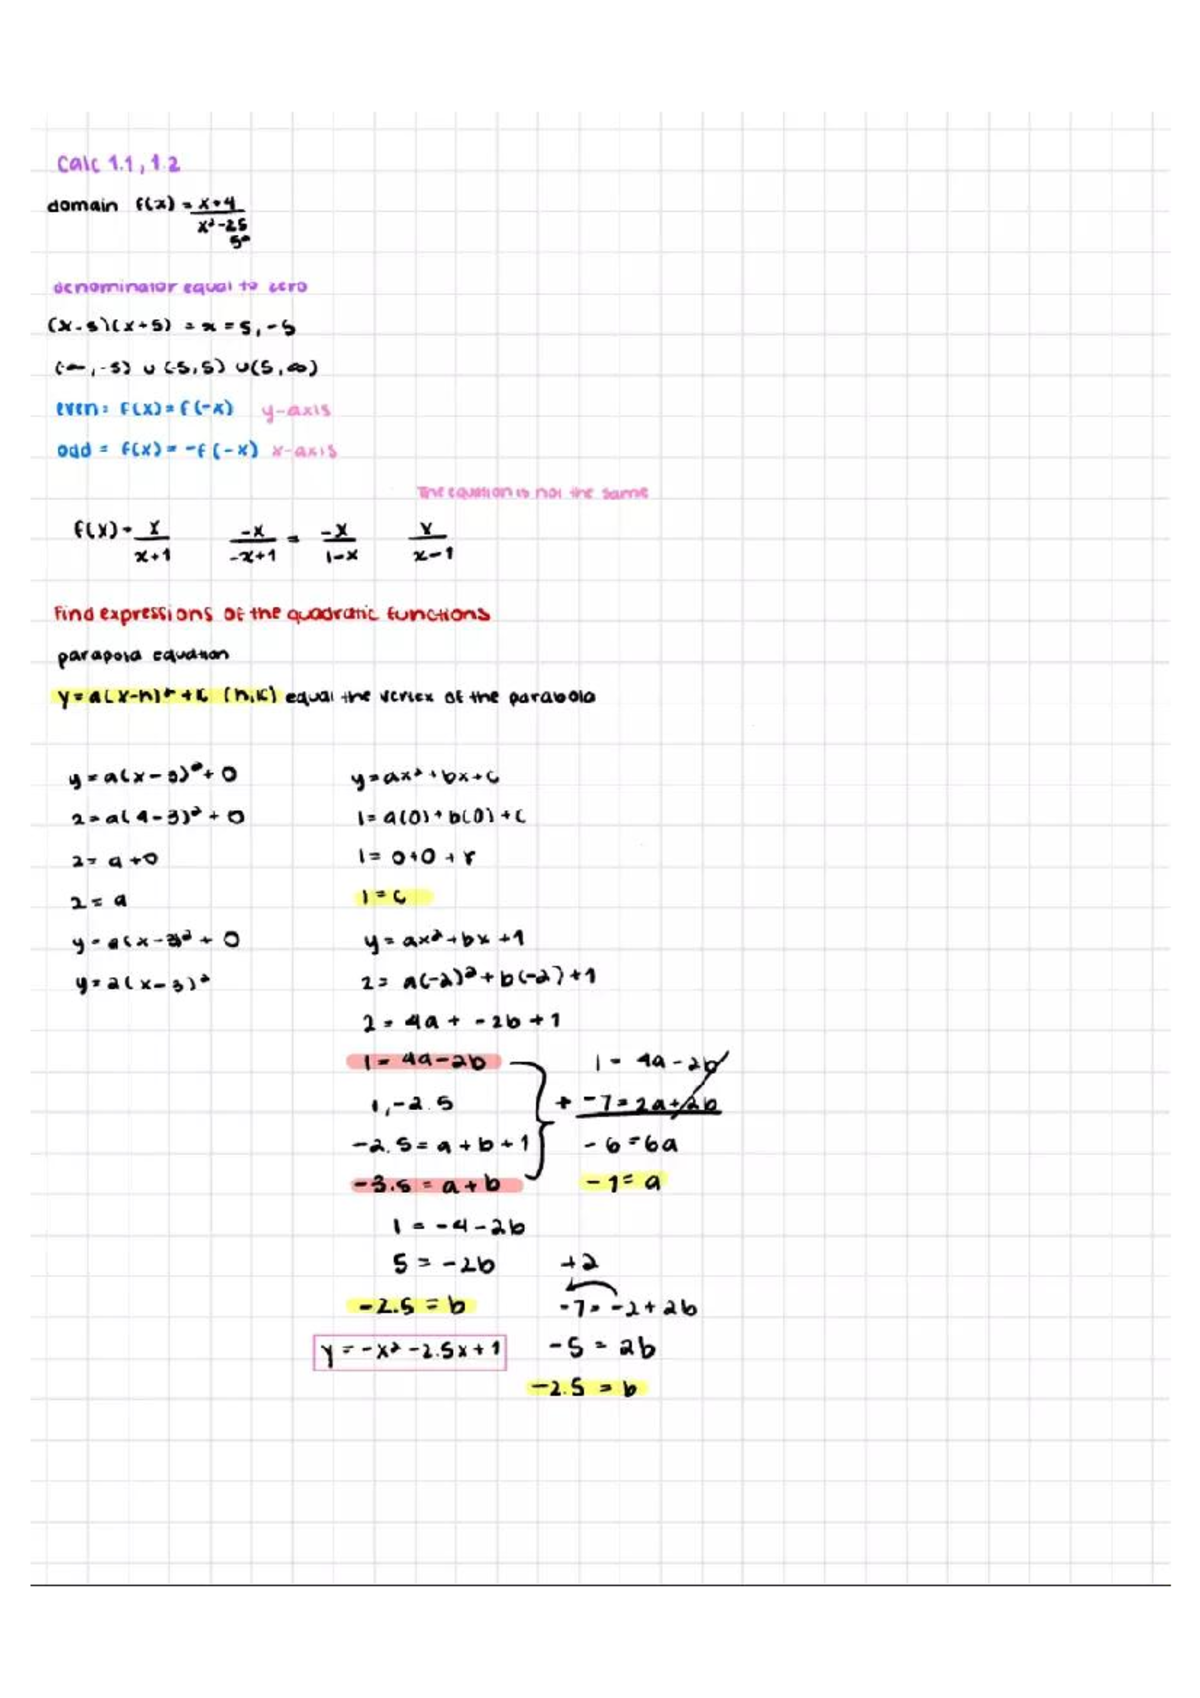 Calc 1.1, 1.2
domain f(x) = x+4
x²-25
5²
denominator equal to zero
(x-5)(x+5) = x = 5, -5
(-∞, -5) ∪ (-5, 5) ∪ (5, ∞)
even: f(x) = f(-x) y-axis
odd = f(x) = -f(-x) x-axis
The equation is not the same
f(x) = x/x+1 -x/-x+1 = -x/1-x x/x-1
Find expressions of the quadratic functions
parabola equation
y = a(x-h)² + k (h,k) equal the vertex of the parabola
y = a(x-3)² + 0
2 = a(4-3)² + 0
2 = a + 0
2 = a
y = a(x-3)² + 0
y = 2(x-3)²
y = ax² + bx + c
1 = a(0) + b(0) + c
1 = 0+0 + c
1 = c
y = ax² + bx + 1
2 = a(-2)² + b(-2) + 1
2 = 4a + -2b + 1
1 = 4a - 2b
1, -2.5
-2.5 = a + b + 1
-3.5 = a + b
1 = 4a - 2b
+ -7 = 2a + 2b
-6 = 6a
-1 = a
1 = -4 - 2b
5 = -2b
-2.5 = b
y = -x² - 2.5x + 1
+2
-7 = -2 + 2b
-5 = 2b
-2.5 = b